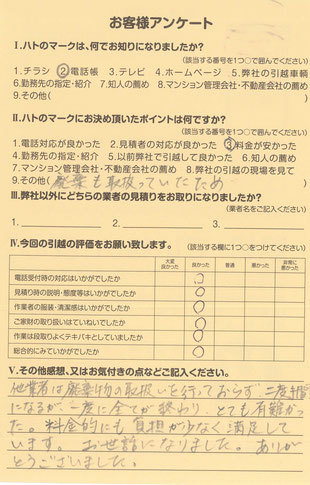 お客様アンケート
Ⅰ.ハトのマークは、何でお知りになりましたか?
(該当する番号を1つ○で囲んでください)
1.チラシ 2.電話帳 3.テレビ 4.ホームページ 5.弊社の引越車輌
6.勤務先の指定・紹介 7.知人の薦め 8.マンション管理会社・不動産会社の薦め
9.その他(
Ⅱ.ハトのマークにお決め頂いたポイントは何ですか?
(該当する番号を1つ○で囲んでください)
1.電話対応が良かった 2.見積者の対応が良かった 3.料金が安かった
4.勤務先の指定・紹介 5.以前弊社で引越して良かった 6.知人の薦め
7.マンション管理会社・不動産会社の薦め 8.弊社の引越の現場を見て
9.その他(廃棄も取扱っていたため
Ⅲ.弊社以外にどちらの業者の見積りをお取りになりましたか?
(業者名をご記入ください)
1. 2. 3.
Ⅳ.今回の引越の評価をお願い致します。 (該当する欄に1つ○をつけてください)
大変良かった 良かった 普通 悪かった 非常に悪かった
電話受付時の対応はいかがでしたか
見積り時の説明・態度等はいかがでしたか
作業者の服装・清潔感はいかがでしたか
ご家財の取り扱いはていねいでしたか
作業は段取りよくテキパキとしていましたか
総合的にみていかがでしたか
Ⅴ.その他感想、又はお気付きの点などご記入ください。
他業者は廃棄物の取扱いを行っておらず 二度手間
になるが、一度に全てが終わり、とても有難かっ
た。料金的にも負担が少なく満足して
います。お世話になりました。ありが
とうございました。